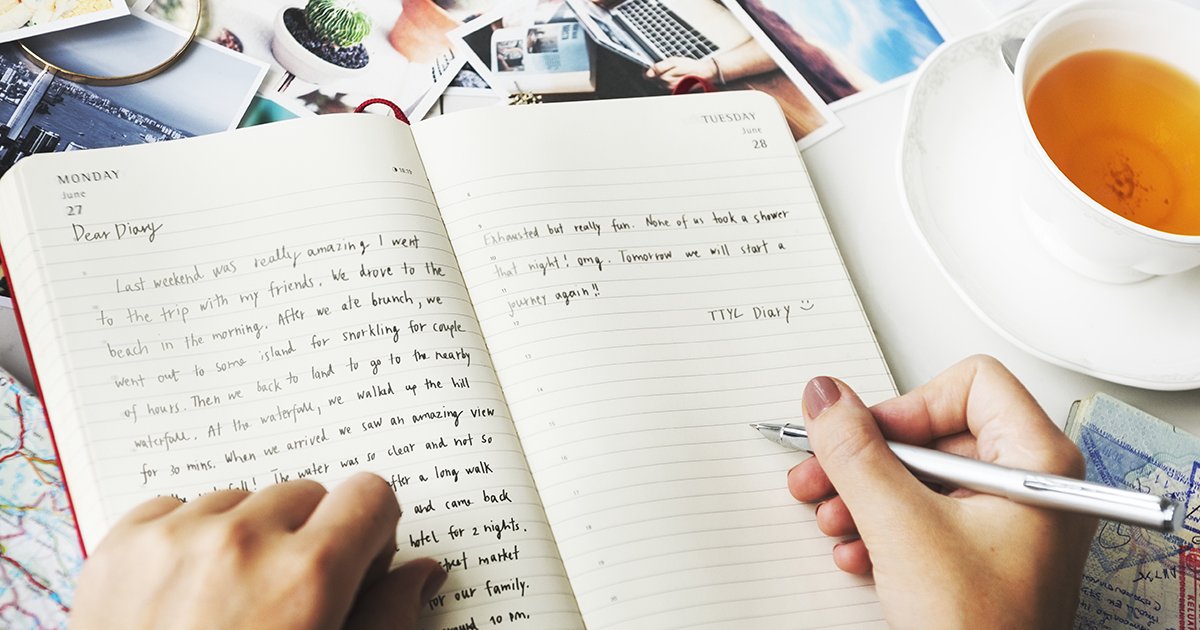 MONDAY
June
27
Dear Diary
Last weekend was really amazing I went
to the trip with my friends. We drove to the
beach in the morning. After we ate brunch, we
went out to some island for snorkling for couple
of hours. Then we back to land to go to the nearby
waterfall. At the waterfall, we walked up the hill
for 30 mins. When we arrived we saw an amazing view
waterfall! The water was so clear and not so
after a long walk
and came back
hotel for 2 nights.
street market
for our family.
around 10 pm.
TUESDAY
June
28
Exhausted but really fun. None of us took a shower
that night! omg. Tomorrow we will start a
journey again!!
TTYL Diary